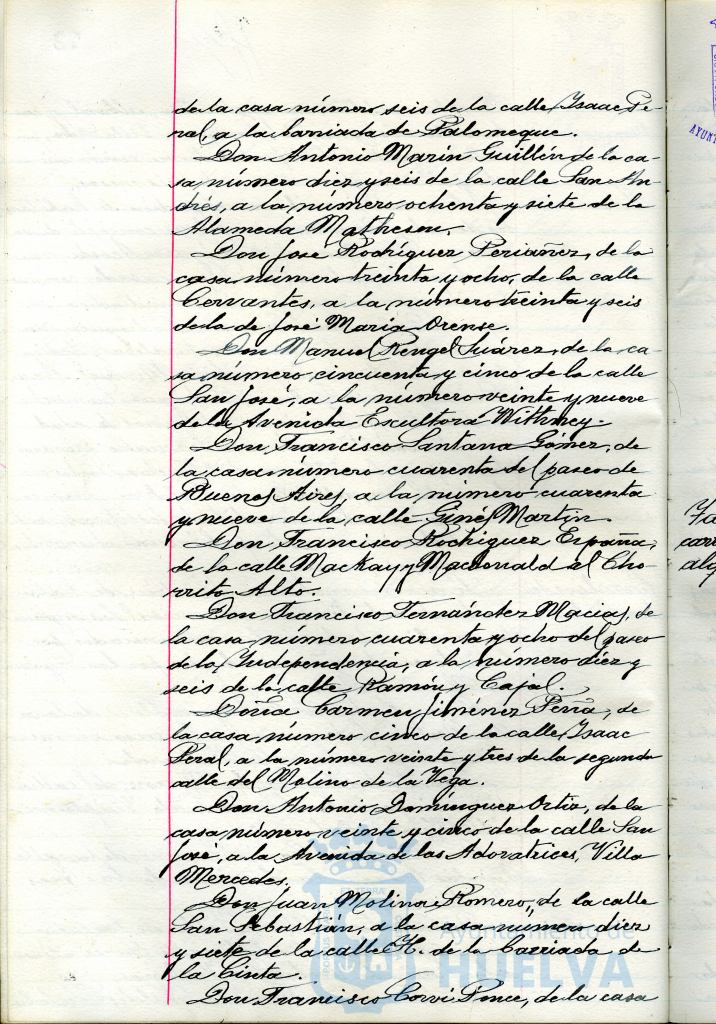 de la casa número seis de la calle Isaac Pe-
ral, a la barriada de Palomeque.
Don Antonio Marín Guillén de la ca-
sa número diez y seis de la calle San An-
drés, a la número ochenta y siete de la
Alameda Mathesen.
Don José Rodríguez Periáñez, de la
casa número treinta y ocho, de la calle
Cervantes, a la número treinta y seis
de la de José María Orense.
Don Manuel Rengel Suárez, de la ca-
sa número cincuenta y cinco de la calle
San José, a la número veinte y nueve
de la Avenida Escultora Withney.
Don Francisco Santana Gómez, de
la casa número cuarenta del paseo de
Buenos Aires, a la número cuarenta
y nueve de la calle Ginés Martín.
Don Francisco Rodríguez España,
de la calle Mackay y Macdonald al Cho-
rrito Alto.
Don Francisco Fernández Macias, de
la casa número cuarenta y ocho del paseo
de la Independencia, a la número diez y
seis de la calle Ramón y Cajal.
Doña Carmen Jiménez Peña, de
la casa número cinco de la calle Isaac
Peral, a la número veinte y tres de la segunda
calle del Molino de la Vega.
Don Antonio Domínguez Ortiz, de la
casa número veinte y cinco de la calle San
José, a la Avenida de las Adoratrices, Villa
Mercedes.
Don Juan Molina Romero, de la calle
San Sebastián, a la casa número diez
y siete de la calle H. de la Barriada de
la Cinta.
Don Francisco Corvi Ponce, de la casa
Ayuntamiento de
HUELVA